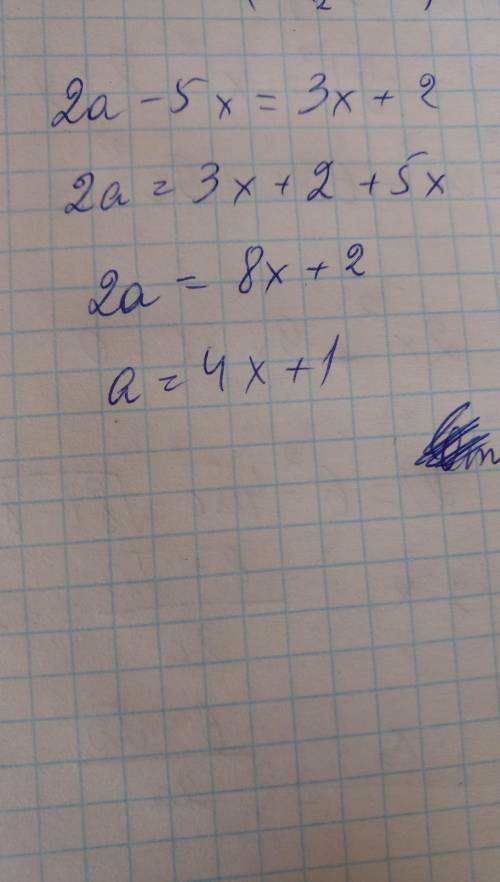 2
2a - 5x = 3x + 2
2a = 3x + 2 + 5x
2a = 8x + 2
a = 4x + 1